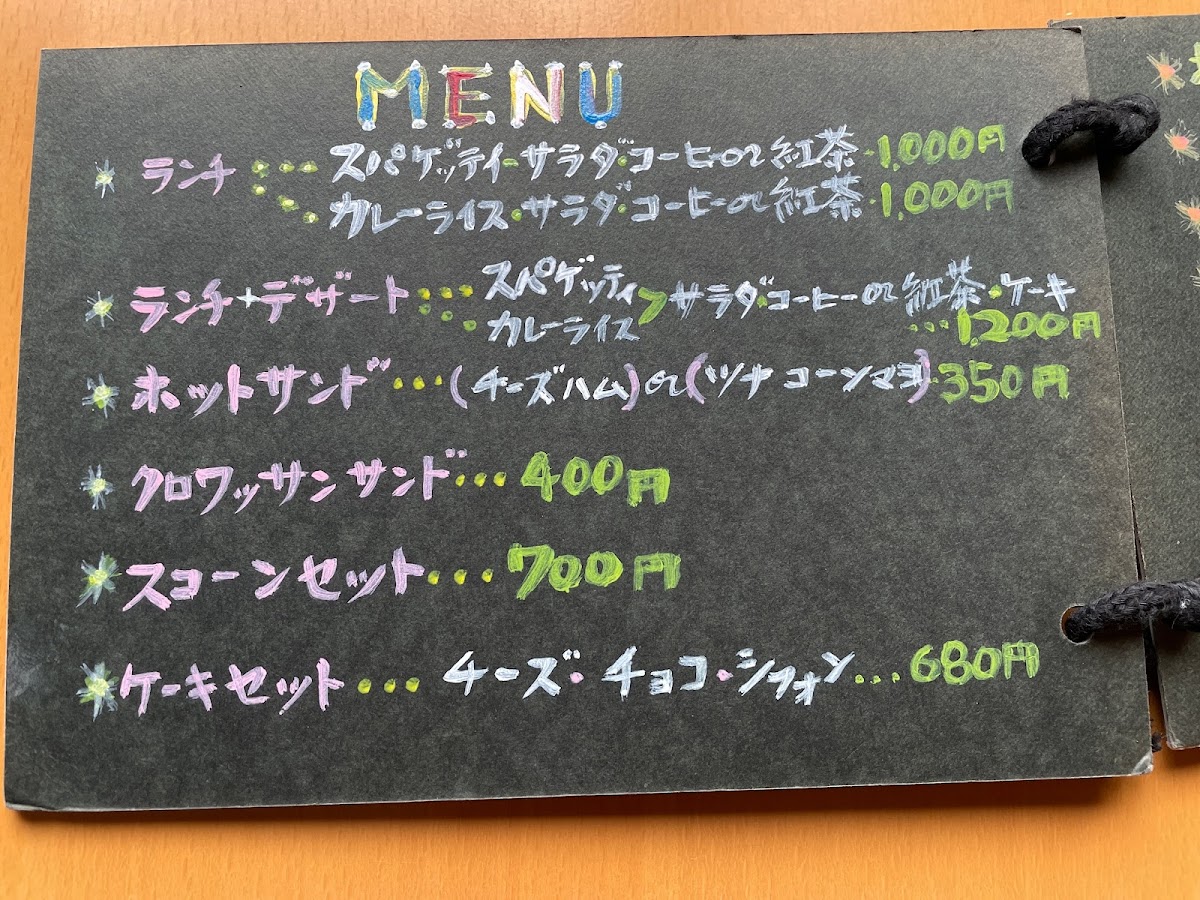 MENU
ランチ・・・スパゲッティ・サラダ・コーヒーor紅茶・1,000円
・・・カレーライス・サラダ・コーヒーor紅茶・1,000円
ランチ+デザート・・・スパゲッティ
・・・カレーライス>サラダ・コーヒーor紅茶・ケーキ
・・・1,200円
ホットサンド・・・(チーズハム)or(ツナコーンマヨ)・350円
クロワッサンサンド・・・400円
スコーンセット・・・700円
ケーキセット・・・チーズ・チョコ・シフォン・・・680円